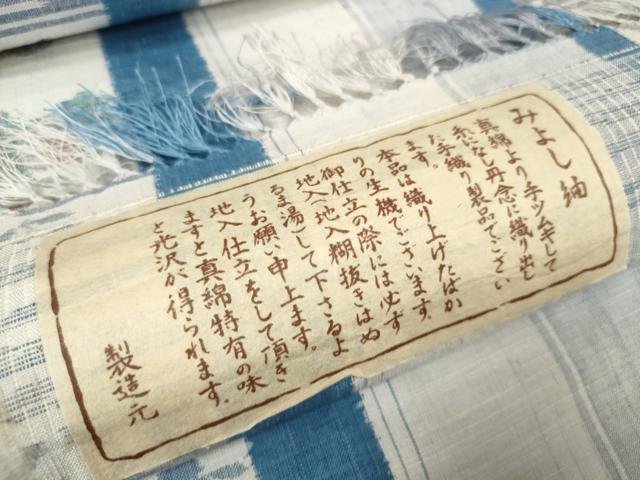 みよし紬
真綿より手ツムギして
糸になし丹念に織り出し
た手織り製品でござい
ます。
本品は織り上げたばか
りの生機でございます。
御仕立の際には必ず
地入(地入糊抜きはぬ
るま湯)して下さるよ
うお願い申上ます。
地入仕立をして頂き
ますと真綿特有の味
と光沢が得られます。
製造元